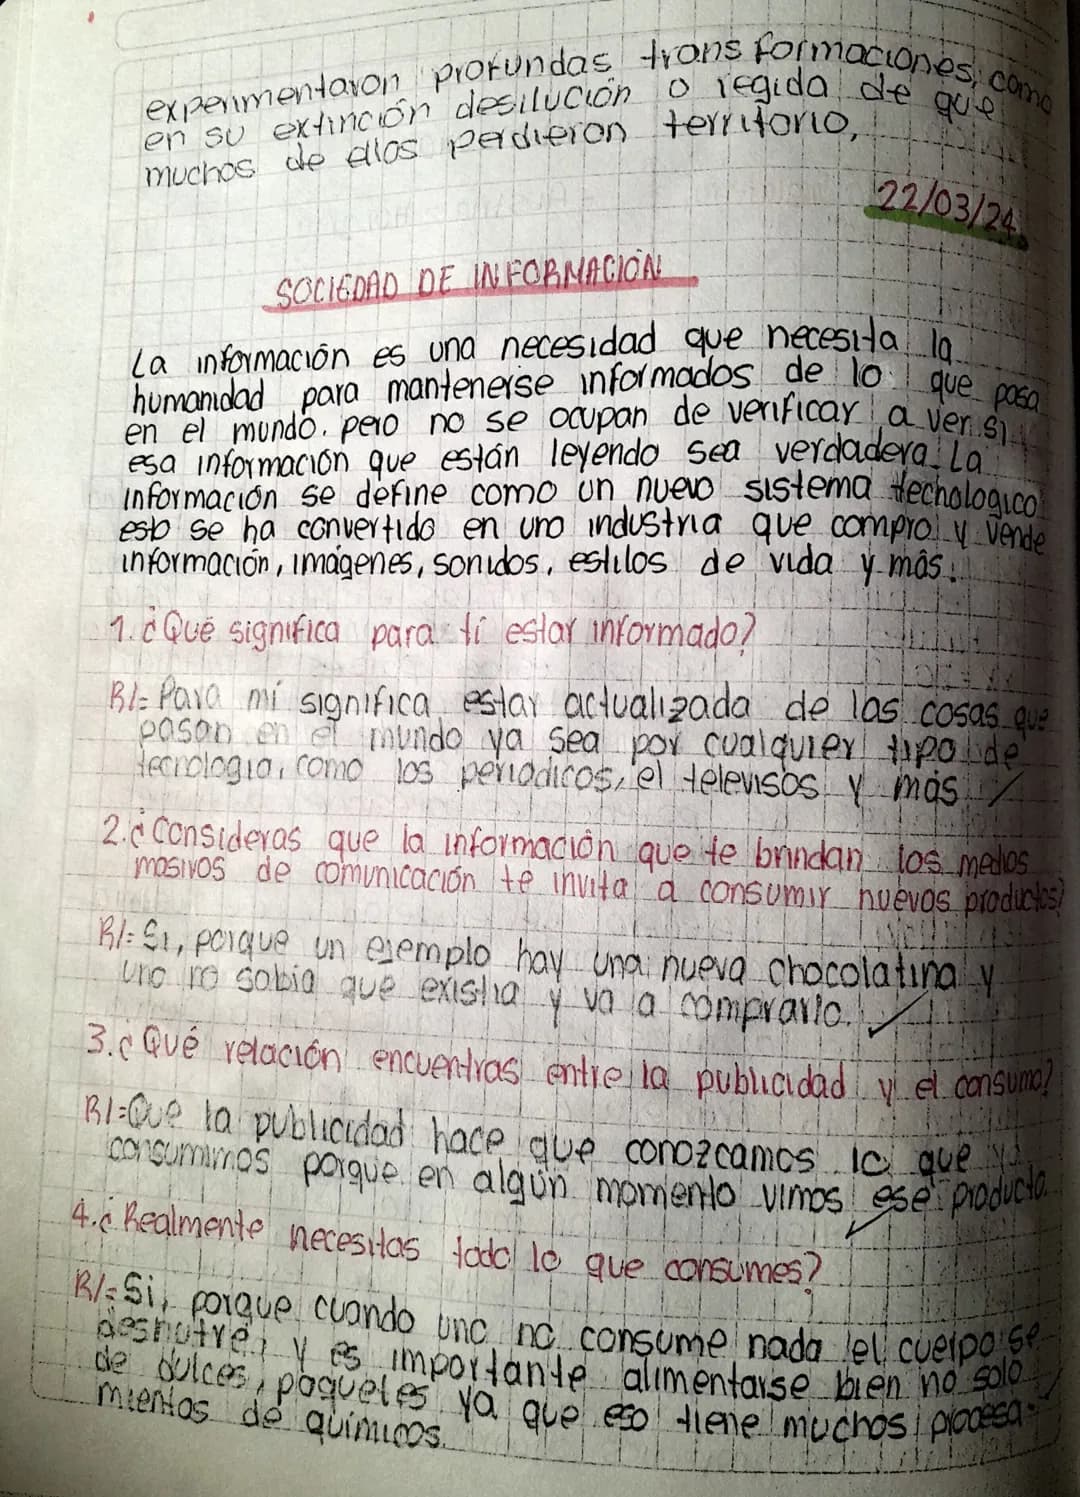 experimentaron profundas transformaciones, como
en su extinción desilución o regida de que
muchos de ellos perdieron territorio,
22/03/24.
SOCIEDAD DE INFORMACIÓN
La información es una necesidad que necesita la
humanidad para mantenerse informados de lo que pasa
en el mundo. pero no se ocupan de verificar a ver si
esa información que están leyendo sea verdadera. La
información se define como un nuevo sistema techologico
esto se ha convertido en una industria que compra y vende
información, imágenes, sonidos, estilos de vida y más.
1. ¿Qué significa para tí estar informado?
R/= Para mí significa estar actualizada de las cosas que
pasan en el mundo ya sea por cualquier tipo de
tecnologia, como los periodicos, el televisos y más
2. ¿Consideras que la información que te brindan los medios
masivos de comunicación te invita a consumir nuevos productos?
R/= Si, porque un ejemplo hay una nueva chocolatina y
uno no sabia que existia y va a comprarlo.
3. ¿Qué relación encuentras entre la publicidad y el consumo?
R/= Que la publicidad hace que conozcamos lo que ya
consumimos porque en algún momento vimos ese producto.
4. ¿Realmente necesitas todo lo que consumes?
R/= Si, porque cuando uno no consume nada el cuerpo se
desnutre, y es importante alimentarse bien no solo
de dulces, paquetes ya que eso tiene muchos procesa-
mientos de químicos.